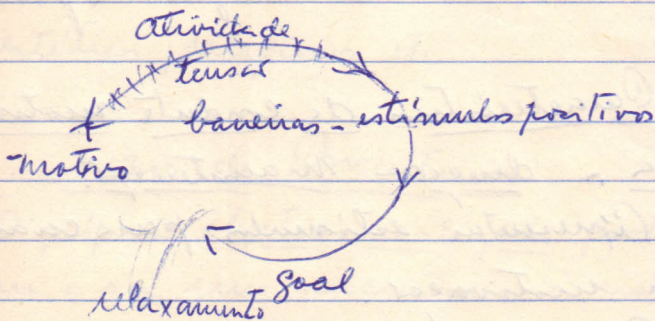 atividade
tensão
barreiras - estímulos positivos
motivo
goal
relaxamento